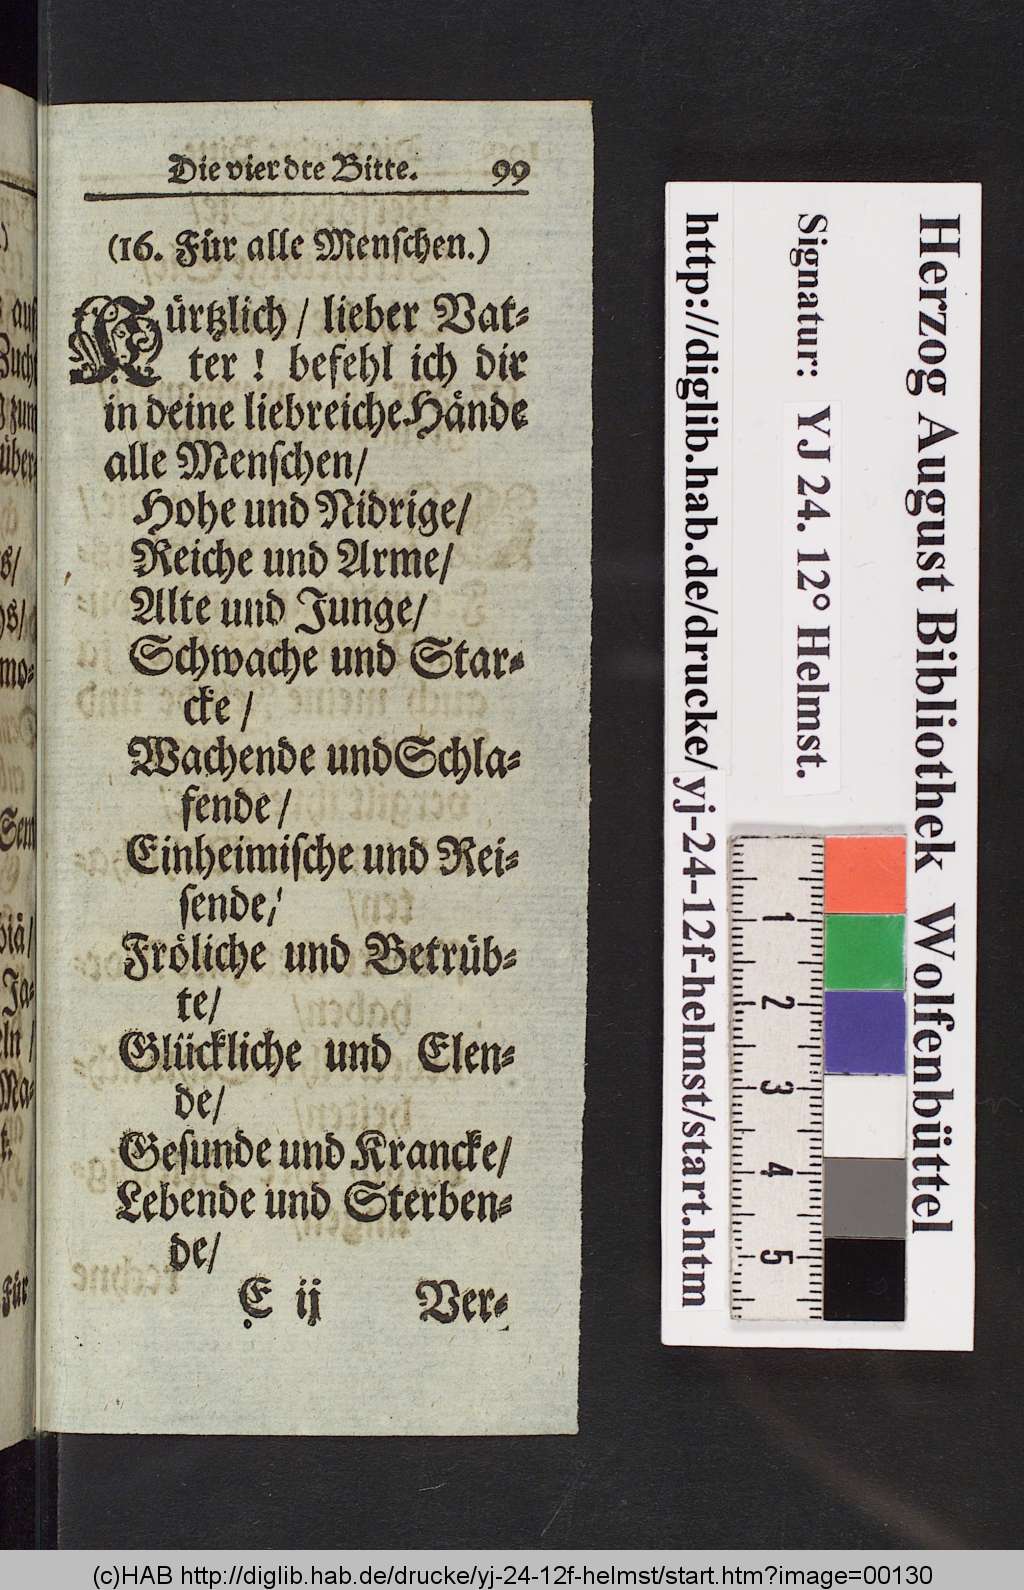 Die vierdte Bitte. 99
(16. Für alle Menſchen.)
Kürtzlich / lieber Vat-
ter ! befehl ich dir
in deine liebreiche Hände
alle Menſchen/
Hohe und Nidrige/
Reiche und Arme/
Alte und Junge/
Schwache und Star-
cke /
Wachende und Schla-
fende /
Einheimiſche und Rei-
ſende/
Fröliche und Betrüb-
te/
Glückliche und Elen-
de/
Geſunde und Krancke/
Lebende und Sterben-
de/
E ij Ver-
auf
Zucht
zum
über
s/
hs/
mo-
Ja-
eln /
Ma-
t.
Für
Herzog August Bibliothek Wolfenbüttel
Signatur: YJ 24. 12° Helmst.
http://diglib.hab.de/drucke/yj-24-12f-helmst/start.htm
1
2
3
4
5
(c)HAB http://diglib.hab.de/drucke/yj-24-12f-helmst/start.htm?image=00130